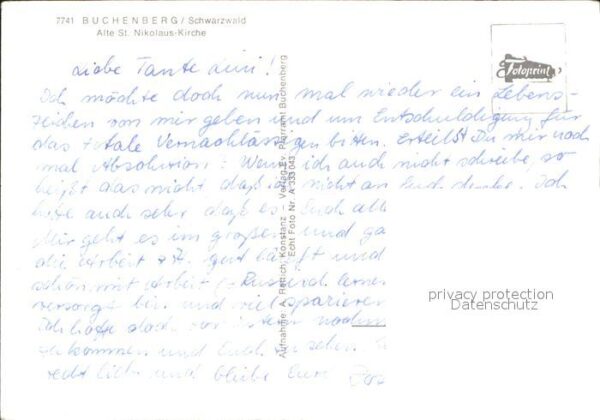 7741 BUCHENBERG / Schwarzwald
Alte St. Nikolaus-Kirche
Fotoprint
Liebe Tante Lini!
Ich möchte doch nun mal wieder ein Lebens-
zeichen von mir geben und um Entschuldigung für
das totale Vernachlässigen bitten. Erteilst Du mir noch
mal Absolution? Wenn ich auch nicht schreibe, so
heißt das nicht daß ich nicht an Euch denke. Ich
hoffe auch sehr daß es Euch
Mir geht es im großen und
die Arbeit z.Z. gut läuft und
schon mit Arbeit
versorgt bin und viel
Ich hoffe doch vor
zu kommen und Euch zu sehen.
recht lieb und bleibe Eure
Aufnahme: A. Rettich, Konstanz - Verlag Ev. Pfarramt Buchenberg
Echt Foto Nr. A 333043
privacy protection
Datenschutz